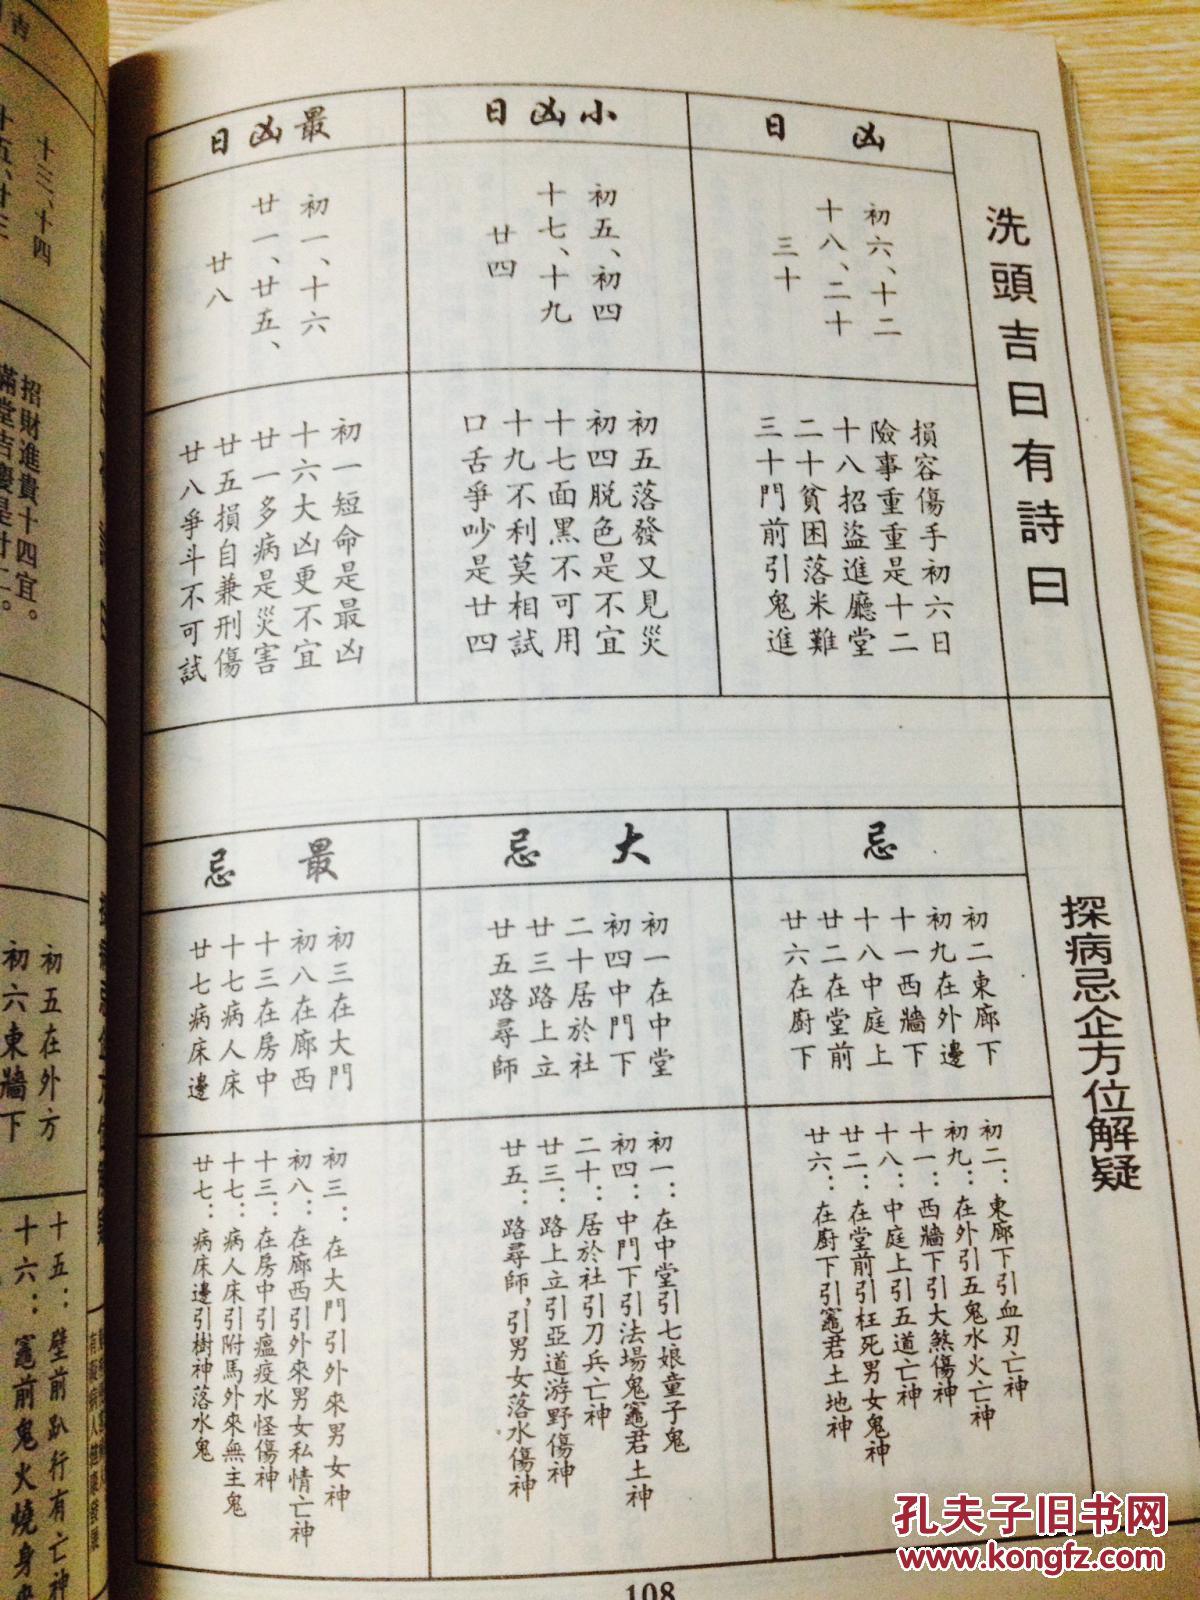 洗頭吉日有詩曰
凶日
初六、十二
十八、二十
三十
損容傷手初六日
險事重重是十二
十八招盜進廳堂
二十貧困落米難
三十門前引鬼進
小凶日
初五、初四
十七、十九
廿四
初五落發又見災
初四脱色是不宜
十七面黑不可用
十九不利莫相試
口舌爭吵是廿四
最凶日
初一、十六
廿一、廿五、
廿八
初一短命是最凶
十六大凶更不宜
廿一多病是災害
廿五損自兼刑傷
廿八爭斗不可試
探病忌企方位解疑
忌
初二東廊下
初九在外邊
十一西牆下
十八中庭上
廿二在堂前
廿六在廚下
初二：東廊下引血刃亡神
初九：在外引五鬼水火亡神
十一：西牆下引大煞傷神
十八：中庭上引五道亡神
廿二：在堂前引枉死男女鬼神
廿六：在廚下引竈君土地神
大忌
初一在中堂
初四中門下
二十居於社
廿三路上立
廿五路尋師
初一：在中堂引七娘童子鬼
初四：中門下引法場鬼竈君土神
二十：居於社引刀兵亡神
廿三：路上立引亞道游野傷神
廿五：路尋師，引男女落水傷神
最忌
初三在大門
初八在廊西
十三在房中
十七病人床
廿七病床邊
初三：在大門引外來男女神
初八：在廊西引外來男女私情亡神
十三：在房中引瘟疫水怪傷神
十七：病人床引附馬外來無主鬼
廿七：病床邊引樹神落水鬼
108
十三、十四
十五、廿三
招財進貴十四宜。
滿堂吉慶是廿二。
初五在外方
初六東牆下
十五：壁前趴行有亡神
十六：竈前鬼火燒身
孔夫子旧书网
www.kongfz.com